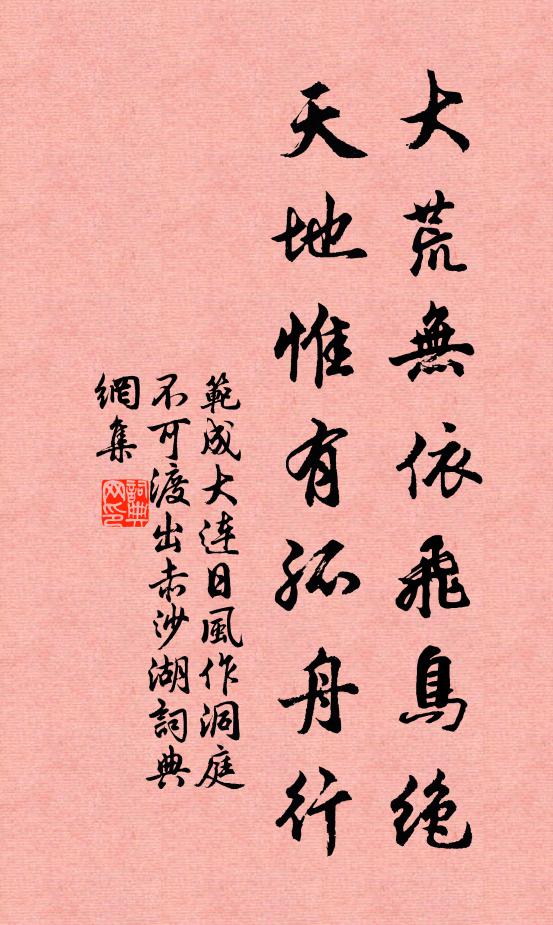 大荒無依飛鳥绝
天地惟有孤舟行
範成大连日風作洞庭
不可渡出赤沙湖詞典
網集
詞典
网印